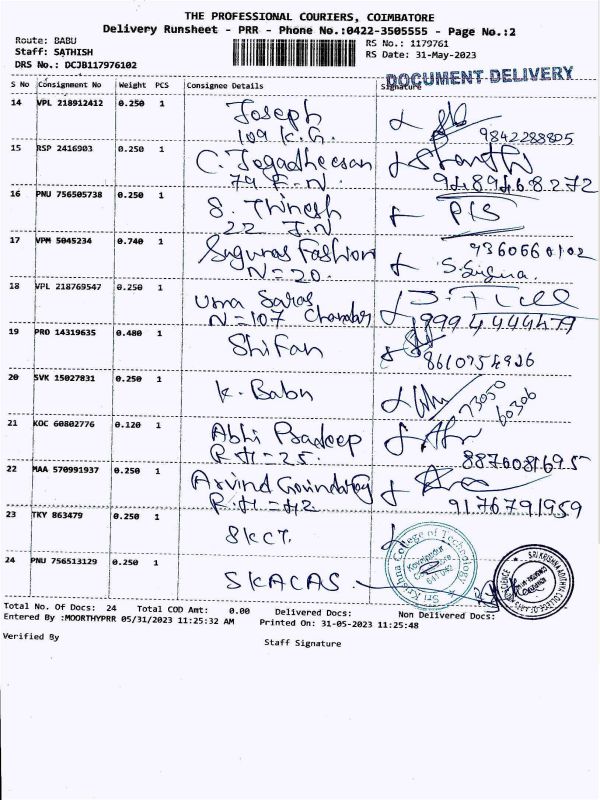 THE PROFESSIONAL COURIERS, COIMBATORE
Delivery Runsheet - PRR - Phone No.:0422-3505555 - Page No.:2
Route: BABU
RS No.: 1179761
Staff: SATHISH
RS Date: 31-May-2023
DRS No.: DCJB117976102
DOCUMENT DELIVERY
S No Consignment No Weight PCS Consignee Details Signature
14 VPL 218912412 0.250 1 Joseph
109 K.G. 9842288805
15 RSP 2416903 0.250 1 C. Jegadheesan
74 F.N. 9489468272
16 PNU 756505738 0.250 1 S. Thinesh
22 J.N
17 VPM 5045234 0.740 1 Suguras Fashion 9360660102
N=20. S. Suguna.
18 VPL 218769547 0.250 1 Uma Saras
N=107 Chamber 9994444479
19 PRO 14319635 0.480 1 Shifan
8610754926
20 SVK 15027831 0.250 1 K. Babu 73050
60306
21 KOC 60802776 0.120 1 Abhi Pradeep
R.H=25. 8870081695
22 MAA 570991937 0.250 1 Arvind Govindaraj
R.H=42 9176791959
23 TKY 863479 0.250 1 SKCT.
Sri Krishna College of Technology
Kovaipudur
Coimbatore
641 042
24 PNU 756513129 0.250 1 SKACAS
SRI KRISHNA ADITHYA COLLEGE OF ARTS AND SCIENCE
Total No. Of Docs: 24 Total COD Amt: 0.00 Delivered Docs: Non Delivered Docs:
Entered By :MOORTHYPRR 05/31/2023 11:25:32 AM Printed On: 31-05-2023 11:25:48
Verified By
Staff Signature